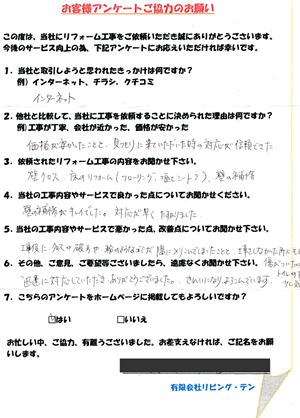 お客様アンケートご協力のお願い
この度は、当社にリフォーム工事をご依頼いただき誠にありがとうございます。
今後のサービス向上の為、下記アンケートにお応えいただければ幸いです。
1. 当社と取引しようと思われたきっかけは何ですか？
例）インターネット、チラシ、クチコミ
インターネット
2. 他社と比較して、当社に工事を依頼することに決められた理由は何ですか？
例）工事が丁寧、会社が近かった、価格が安かった
価格が安かったことと、見つもりに来ていただいた時の対応が信頼できた
3. 依頼されたリフォーム工事の内容をお聞かせ下さい。
壁クロス 床のリフォーム（フローリング シート）、壁の補修
4. 当社の工事内容やサービスで良かった点についてお聞かせください。
壁の補修がキレイでした。対応が早く助かりました
5. 当社の工事内容やサービスで悪かった点、改善点についてお聞かせ下さい。
工事後に、
6. その他、ご意見、ご要望等ございましたら、遠慮なくお聞かせ下さい。
迅速に対応していただき、ありがとうございました。きれいになりよろこんでいます。
7. こちらのアンケートをホームページに掲載してもよろしいですか？
はい □いいえ
お忙しい中、ご協力、有難うございました。お差支えなければ、ご記名をお願
いします。
有限会社リビング・テン